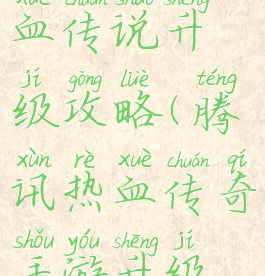 xuè chuán shuō shēng
血传说升
jí gōng lüè téng
级攻略(腾
xùn rè xuè chuán qí
讯热血传奇
shǒu yóu shēng jí
手游升级